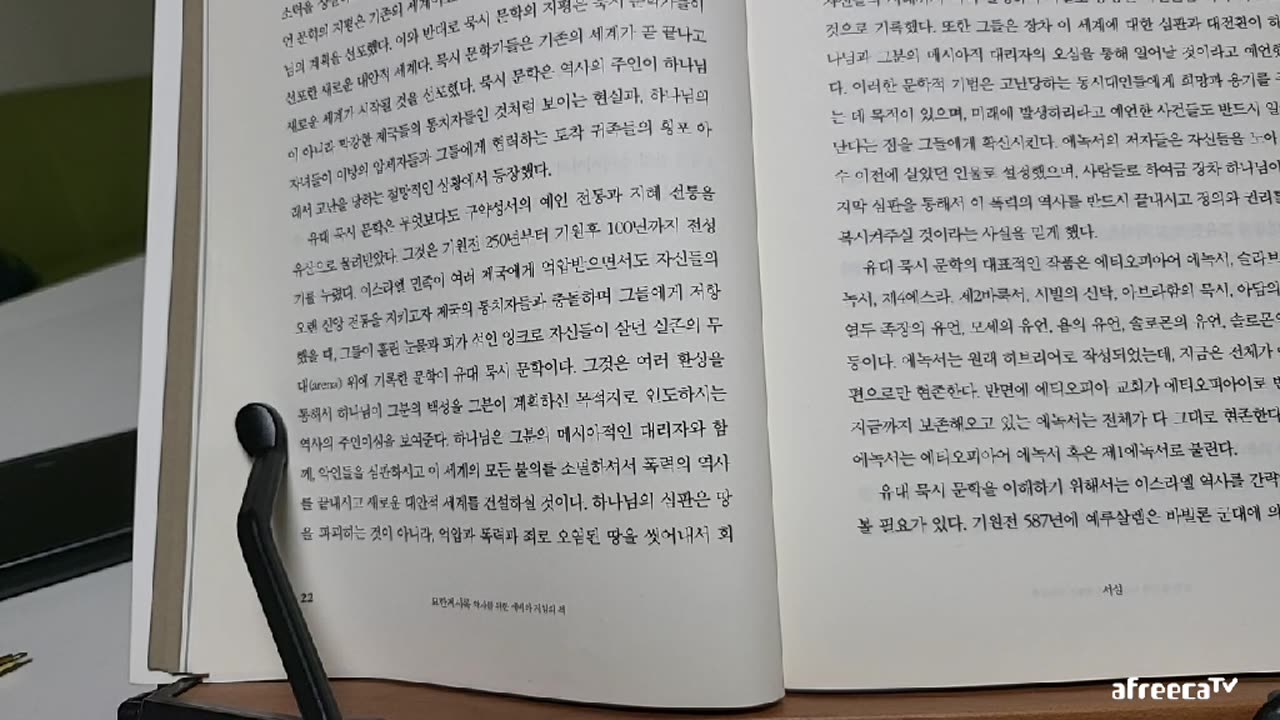 언 문학의 지평은 기존의
님의 계획을 선포했다. 이와 반대로 묵시 문학의 지평은 묵시 문학가들이
선포한 새로운 대안적 세계다. 묵시 문학가들은 기존의 세계가 곧 끝나고
새로운 세계가 시작될 것을 선포했다. 묵시 문학은 역사의 주인이 하나님
이 아니라 막강한 제국들의 통치자들인 것처럼 보이는 현실과, 하나님의
자녀들이 이방의 압제자들과 그들에게 협력하는 토착 귀족들의 횡포 아
래서 고난을 당하는 절망적인 상황에서 등장했다.
유대 묵시 문학은 무엇보다도 구약성서의 예언 전통과 지혜 전통을
유산으로 물려받았다. 그것은 기원전 250년부터 기원후 100년까지 전성
기를 누렸다. 이스라엘 민족이 여러 제국에게 억압받으면서도 자신들의
오랜 신앙 전통을 지키고자 제국의 통치자들과 충돌하며 그들에게 저항
했을 때, 그들이 흘린 눈물과 피가 섞인 잉크로 자신들이 살던 실존의 무
대(arena) 위에 기록한 문학이 유대 묵시 문학이다. 그것은 여러 환상을
통해서 하나님이 그분의 백성을 그분이 계획하신 목적지로 인도하시는
역사의 주인이심을 보여준다. 하나님은 그분의 메시아적인 대리자와 함
께, 악인들을 심판하시고 이 세계의 모든 불의를 소멸하셔서 폭력의 역사
를 끝내시고 새로운 대안적 세계를 건설하실 것이다. 하나님의 심판은 땅
을 파괴하는 것이 아니라, 억압과 폭력과 죄로 오염된 땅을 씻어내서 회
22
요한계시록 역사를 위한 예배와 저항의 책
것으로 기록했다. 또한 그들은 장차 이 세계에 대한 심판과 대전환이 하
나님과 그분의 메시아적 대리자의 오심을 통해 일어날 것이라고 예언
다. 이러한 문학적 기법은 고난당하는 동시대인들에게 희망과 용기를
는 데 목적이 있으며, 미래에 발생하리라고 예언한 사건들도 반드시 일
난다는 점을 그들에게 확신시킨다. 에녹서의 저자들은 자신들을 노아
수 이전에 살았던 인물로 설정했으며, 사람들로 하여금 장차 하나님이
지막 심판을 통해서 이 폭력의 역사를 반드시 끝내시고 정의와 권리를
복시켜주실 것이라는 사실을 믿게 했다.
유대 묵시 문학의 대표적인 작품은 에티오피아어 에녹서, 슬라브
녹서, 제4에스라, 제2바룩서, 시빌의 신탁, 아브라함의 묵시, 아담의
열두 족장의 유언, 모세의 유언, 욥의 유언, 솔로몬의 유언, 솔로몬의
등이다. 에녹서는 원래 히브리어로 작성되었는데, 지금은 전체가
편으로만 현존한다. 반면에 에티오피아 교회가 에티오피아어로 번
지금까지 보존해오고 있는 에녹서는 전체가 다 그대로 현존한다
에녹서는 에티오피아어 에녹서 혹은 제1에녹서로 불린다.
유대 묵시 문학을 이해하기 위해서는 이스라엘 역사를 간략
볼 필요가 있다. 기원전 587년에 예루살렘은 바빌론 군대에 의
서설
afreecaTV